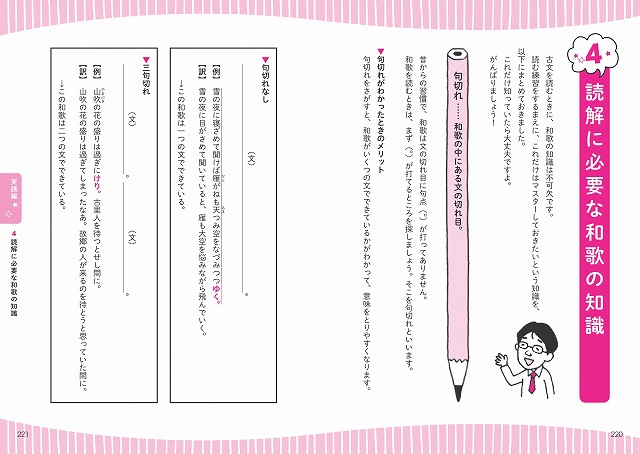 4 読解に必要な和歌の知識
古文を読むときに、和歌の知識は不可欠です。
読む練習をするまえに、これだけはマスターしておきたいという知識を、
以下にまとめておきました。
これだけ知っていたら大丈夫ですよ。
がんばりましょう!
句切れ……和歌の中にある文の切れ目。
昔からの習慣で、和歌は文の切れ目に句点(。)が打ってありません。
和歌を読むときは、まず(。)が打てるところを探しましょう。そこを句切れといいます。
▼句切れがわかったときのメリット
句切れをさがすと、和歌がいくつの文でできているかがわかって、意味をとりやすくなります。
220
▼句切れなし
(文)
。
【例】 雪の夜に寝ざめて聞けば雁がねも天つみ空をなづみつつゆく。
【訳】 雪の夜に目がさめて聞いていると、雁も大空を悩みながら飛んでいく。
→この和歌は一つの文でできている。
▼三句切れ
(文)
。
(文)
。
【例】 山吹の花の盛りは過ぎにけり。古里人を待つとせし間に。
【訳】 山吹の花の盛りは過ぎてしまったなあ。故郷の人が来るのを待とうと思っていた間に。
→この和歌は二つの文でできている。
実践編
4 読解に必要な和歌の知識
221